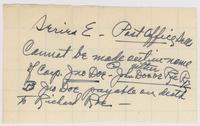 Series E - Post Office Dec
Cannot be made out in name
of Corp. Jno Doe - or Jno Doe &
to Jno Doe, payable on death
to Richard Roe -